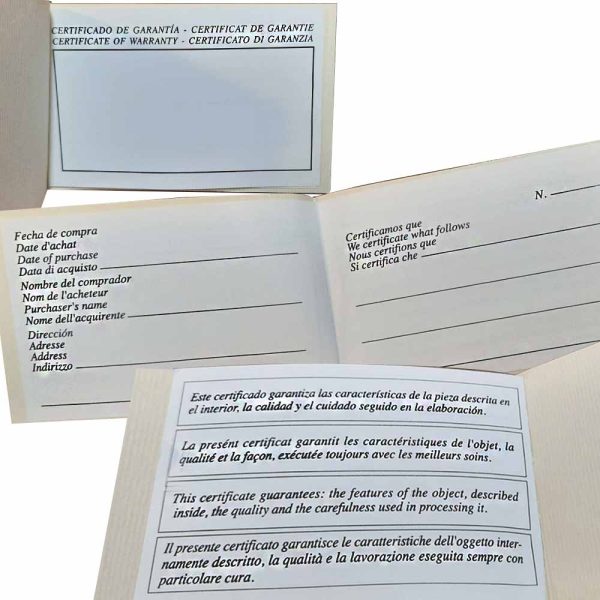 CERTIFICADO DE GARANTÍA - CERTIFICAT DE GARANTIE
CERTIFICATE OF WARRANTY - CERTIFICATO DI GARANZIA
Fecha de compra
Date d'achat
Date of purchase
Data di acquisto
Nombre del comprador
Nom de l'acheteur
Purchaser's name
Nome dell'acquirente
Dirección
Adresse
Address
Indirizzo
N.
Certificamos que
We certificate what follows
Nous certifions que
Si certifica che
Este certificado garantiza las características de la pieza descrita en
el interior, la calidad y el cuidado seguido en la elaboración.
La présént certificat garantit les caractéristiques de l'objet, la
qualité et la façon, exécutée toujours avec les meilleurs soins.
This certificate guarantees: the features of the object, described
inside, the quality and the carefulness used in processing it.
Il presente certificato garantisce le caratteristiche dell'oggetto inter-
namente descritto, la qualità e la lavorazione eseguita sempre con
particolare cura.